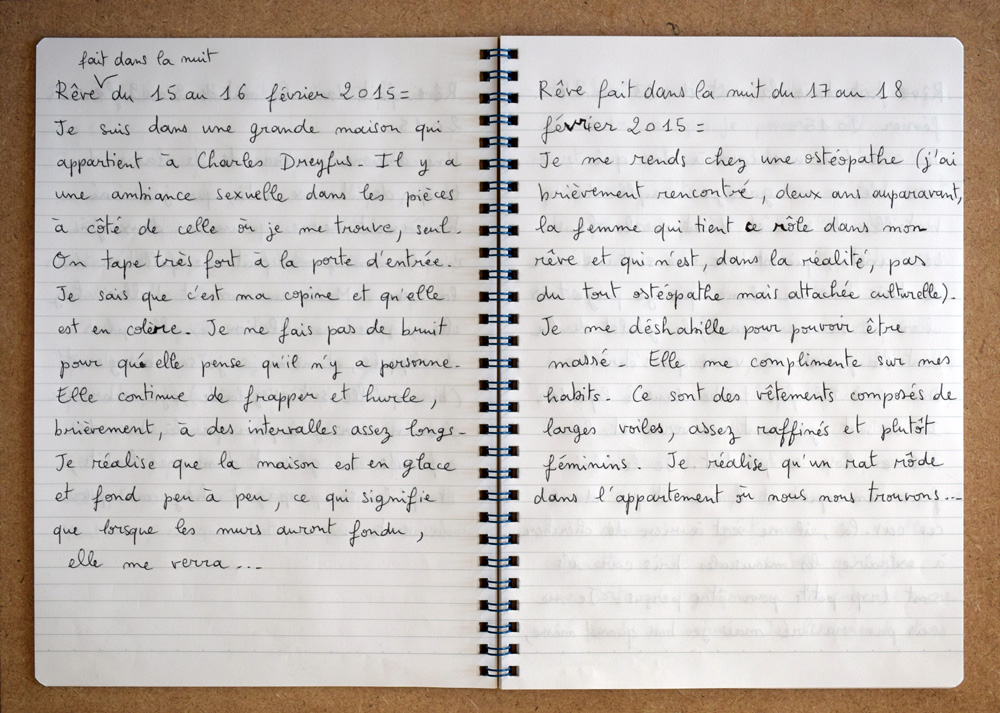 fait dans la nuit
Rêve du 15 au 16 février 2015 =
Je suis dans une grande maison qui
appartient à Charles Dreyfus. Il y a
une ambiance sexuelle dans les pièces
à côté de celle où je me trouve, seul.
On tape très fort à la porte d'entrée.
Je sais que c'est ma copine et qu'elle
est en colère. Je ne fais pas de bruit
pour qu'elle pense qu'il n'y a personne.
Elle continue de frapper et hurle,
brièvement, à des intervalles assez longs.
Je réalise que la maison est en glace
et fond peu à peu, ce qui signifie
que lorsque les murs auront fondu,
elle me verra...
Rêve fait dans la nuit du 17 au 18
février 2015 =
Je me rends chez une ostéopathe (j'ai
brièvement rencontré, deux ans auparavant,
la femme qui tient ce rôle dans mon
rêve et qui n'est, dans la réalité, pas
du tout ostéopathe mais attachée culturelle).
Je me déshabille pour pouvoir être
massé. Elle me complimente sur mes
habits. Ce sont des vêtements composés de
larges voiles, assez raffinés et plutôt
féminins. Je réalise qu'un rat rôde
dans l'appartement où nous nous trouvons...